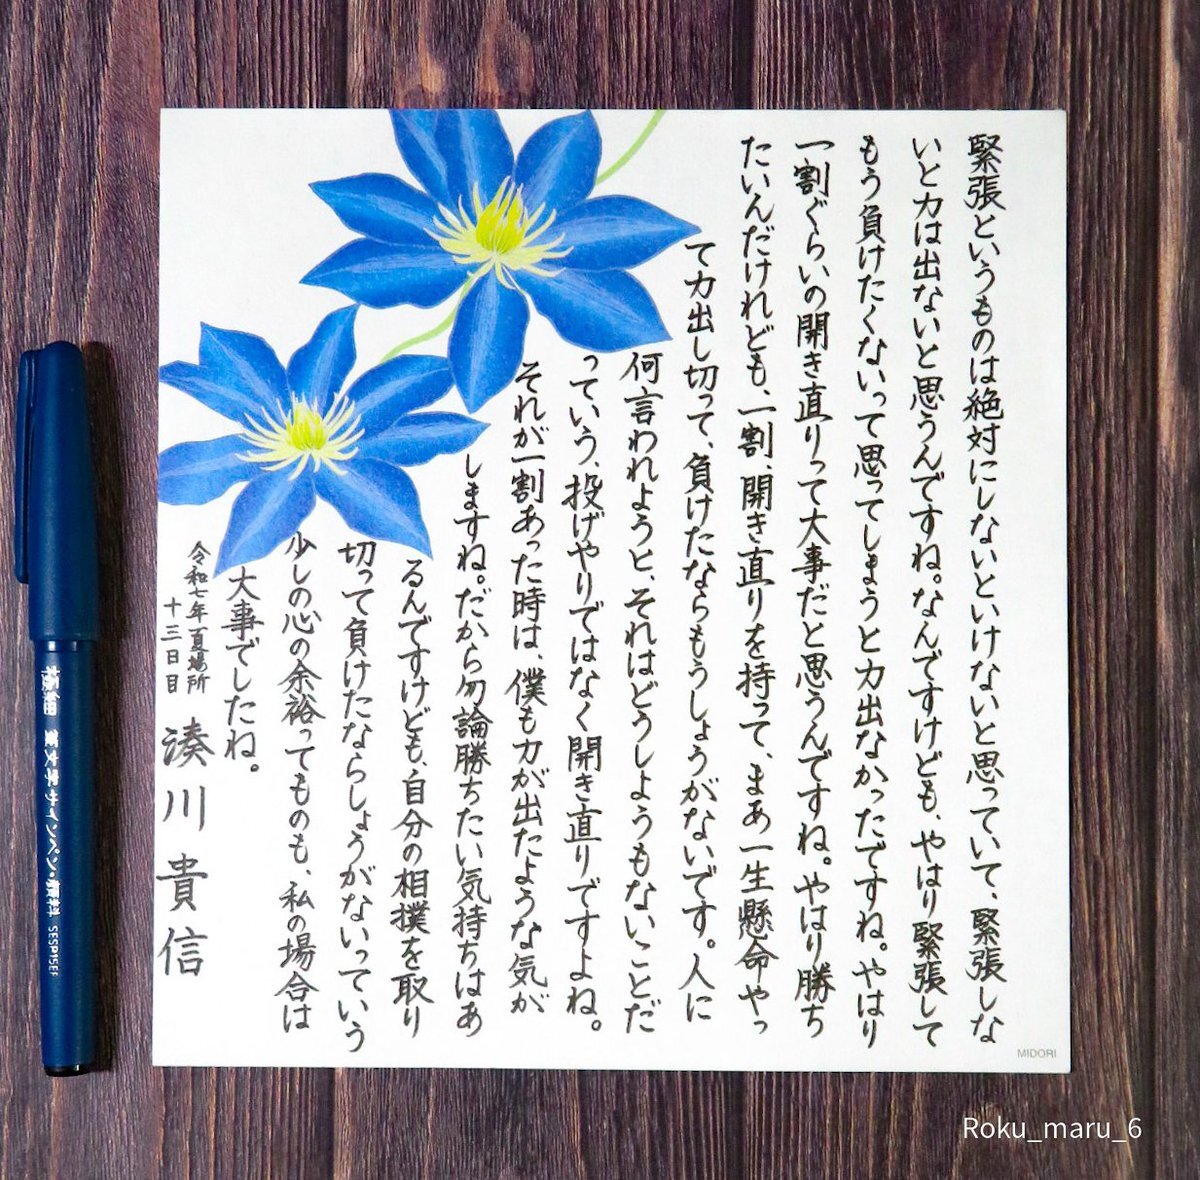 緊張というものは絶対にしないといけないと思っていて、緊張しな
いと力は出ないと思うんですね。なんですけども、やはり緊張して
もう負けたくないって思ってしまうと力出なかったですね。やはり
一割ぐらいの開き直りって大事だと思うんですね。やはり勝ち
たいんだけれども、一割、開き直りを持って、まあ一生懸命やっ
て力出し切って、負けたならもうしょうがないです。人に
何言われようと、それはどうしようもないことだ
っていう、投げやりではなく開き直りですよね。
それが一割あった時は、僕も力が出たような気が
しますね。だから勿論勝ちたい気持ちはあ
るんですけども、自分の相撲を取り
切って負けたならしょうがないっていう
少しの心の余裕ってものも、私の場合は
大事でしたね。
令和七年夏場所
十三日目
湊川貴信
MIDORI
極細 筆文字サインペン・顔料 SESP15EF
Roku_maru_6